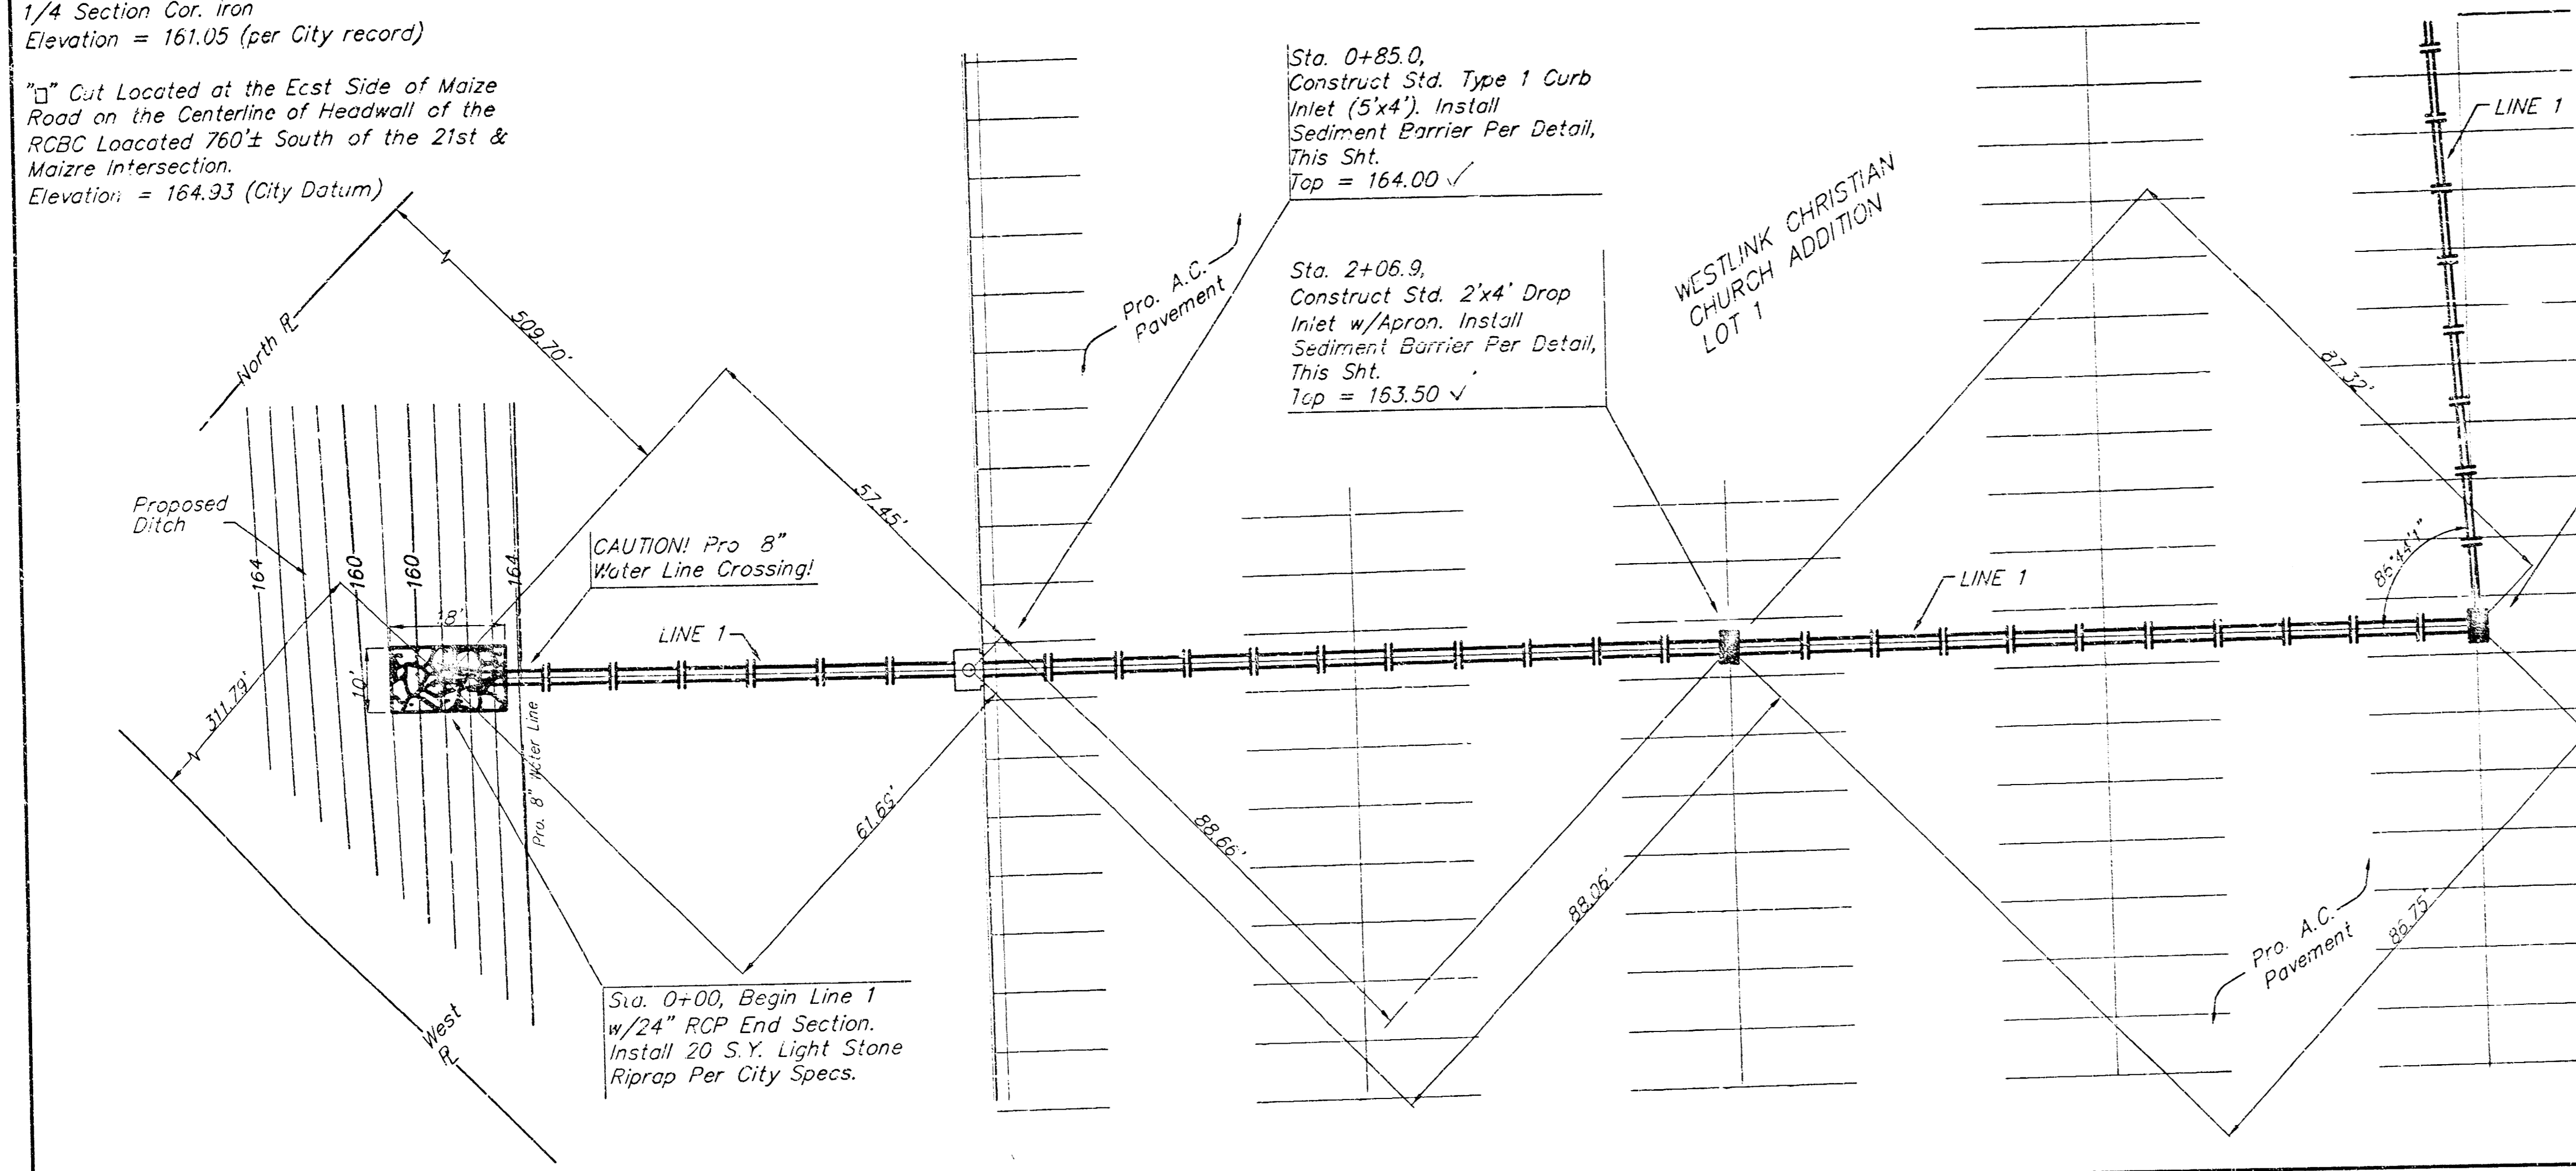 1/4 Section Cor. iron
Elevation = 161.05 (per City record)
"□" Cut Located at the Ecst Side of Maize
Road on the Centerline of Headwall of the
RCBC Loacated 760'± South of the 21st &
Maizre Intersection.
Elevation = 164.93 (City Datum)
North ⅊
509.70'
Proposed
Ditch
164
160
160
164
18'
10'
311.79'
West
⅊
CAUTION! Pro 8"
Water Line Crossing!
LINE 1
57.45'
Pro. 8" Water Line
61.69'
Sta. 0+00, Begin Line 1
w/24" RCP End Section.
Install 20 S.Y. Light Stone
Riprap Per City Specs.
Pro. A.C.
Pavement
Sta. 0+85.0,
Construct Std. Type 1 Curb
Inlet (5'x4'). Install
Sediment Barrier Per Detail,
This Sht.
Top = 164.00 ✓
Sta. 2+06.9,
Construct Std. 2'x4' Drop
Inlet w/Apron. Install
Sediment Barrier Per Detail,
This Sht.
Top = 163.50 ✓
88.66'
88.06'
WESTLINK CHRISTIAN
CHURCH ADDITION
LOT 1
87.32'
LINE 1
LINE 1
Pro. A.C.
Pavement
86.75'